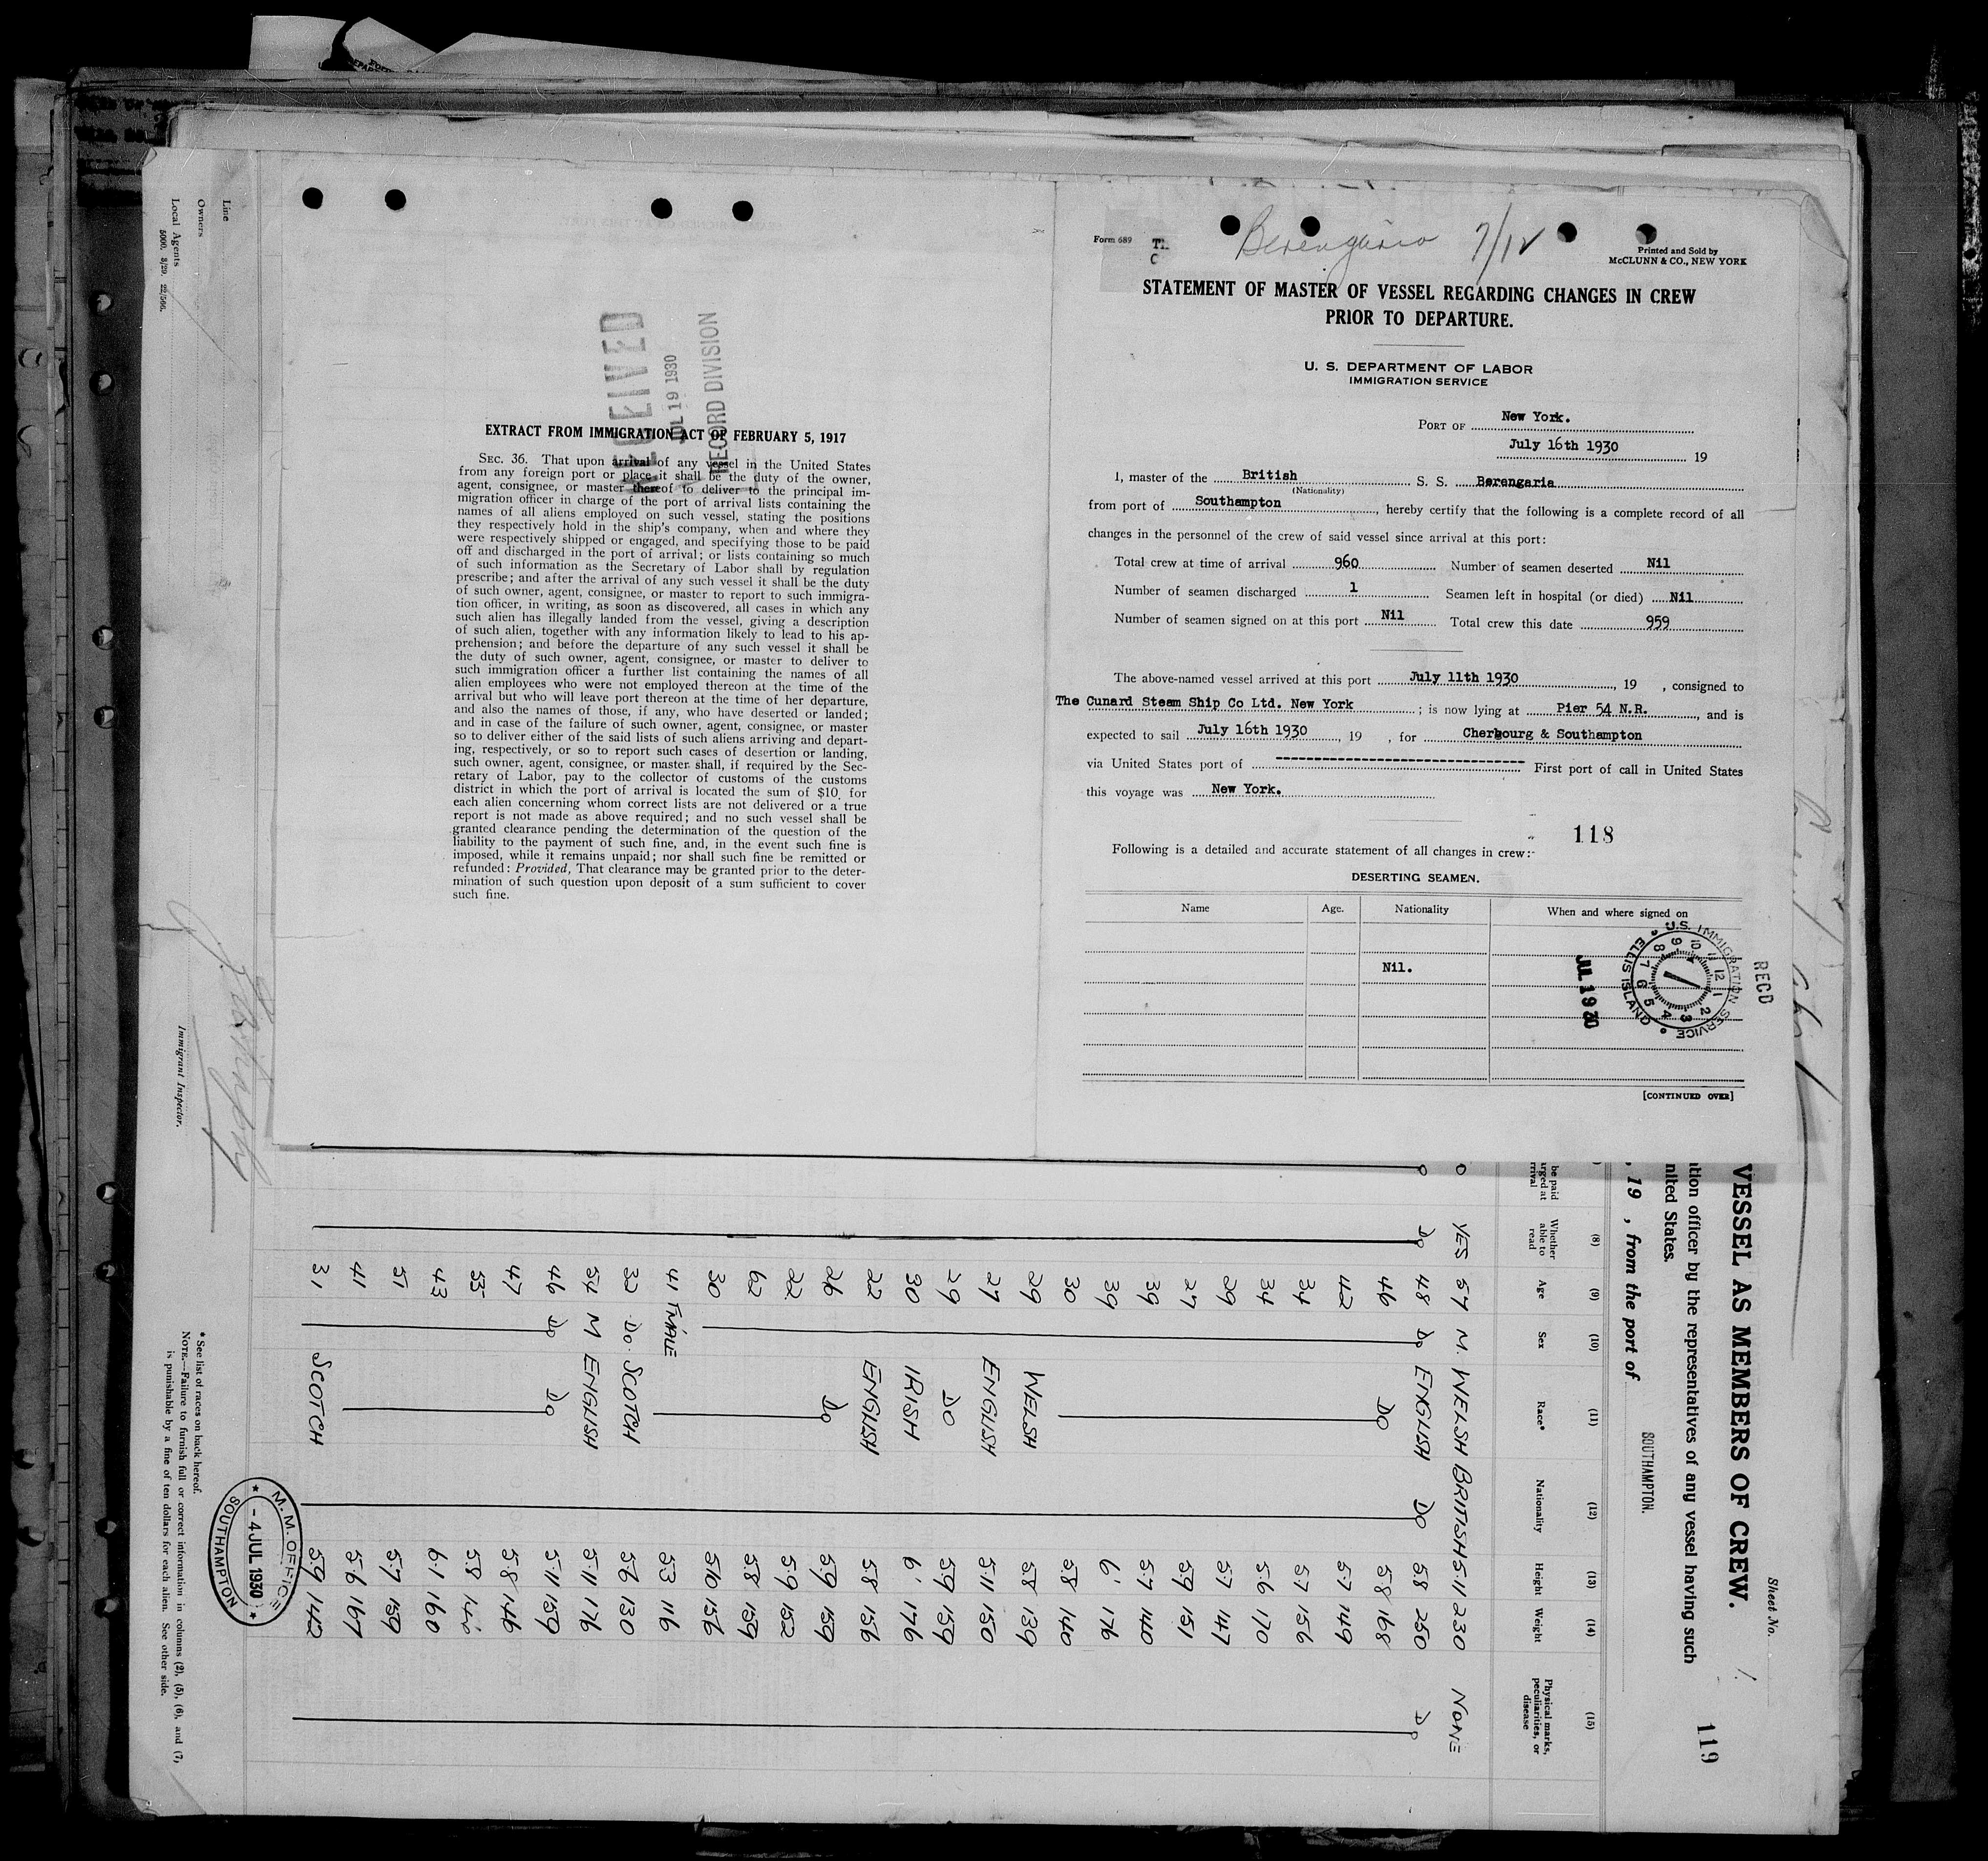 Line
Owners
Local Agents
5000. 8/29. 22/566.
Immigrant Inspector.
RECEIVED
JUL 19 1930
RECORD DIVISION
EXTRACT FROM IMMIGRATION ACT OF FEBRUARY 5, 1917
SEC. 36. That upon arrival of any vessel in the United States
from any foreign port or place it shall be the duty of the owner,
agent, consignee, or master thereof to deliver to the principal im-
migration officer in charge of the port of arrival lists containing the
names of all aliens employed on such vessel, stating the positions
they respectively hold in the ship's company, when and where they
were respectively shipped or engaged, and specifying those to be paid
off and discharged in the port of arrival; or lists containing so much
of such information as the Secretary of Labor shall by regulation
prescribe; and after the arrival of any such vessel it shall be the duty
of such owner, agent, consignee, or master to report to such immigra-
tion officer, in writing, as soon as discovered, all cases in which any
such alien has illegally landed from the vessel, giving a description
of such alien, together with any information likely to lead to his ap-
prehension; and before the departure of any such vessel it shall be
the duty of such owner, agent, consignee, or master to deliver to
such immigration officer a further list containing the names of all
alien employees who were not employed thereon at the time of the
arrival but who will leave port thereon at the time of her departure,
and also the names of those, if any, who have deserted or landed;
and in case of the failure of such owner, agent, consignee, or master
so to deliver either of the said lists of such aliens arriving and depart-
ing, respectively, or so to report such cases of desertion or landing,
such owner, agent, consignee, or master shall, if required by the Sec-
retary of Labor, pay to the collector of customs of the customs
district in which the port of arrival is located the sum of $10 for
each alien concerning whom correct lists are not delivered or a true
report is not made as above required; and no such vessel shall be
granted clearance pending the determination of the question of the
liability to the payment of such fine, and, in the event such fine is
imposed, while it remains unpaid; nor shall such fine be remitted or
refunded: Provided, That clearance may be granted prior to the deter-
mination of such question upon deposit of a sum sufficient to cover
such fine.
Form 689
Berengaria 7/12
Printed and Sold by
McCLUNN & CO., NEW YORK
STATEMENT OF MASTER OF VESSEL REGARDING CHANGES IN CREW
PRIOR TO DEPARTURE.
U. S. DEPARTMENT OF LABOR
IMMIGRATION SERVICE
PORT OF New York.
July 16th 1930 19
I, master of the British S. S. Berengaria
(Nationality)
from port of Southampton, hereby certify that the following is a complete record of all
changes in the personnel of the crew of said vessel since arrival at this port:
Total crew at time of arrival 960 Number of seamen deserted Nil
Number of seamen discharged 1 Seamen left in hospital (or died) Nil
Number of seamen signed on at this port Nil Total crew this date 959
The above-named vessel arrived at this port July 11th 1930, 19 , consigned to
The Cunard Steam Ship Co Ltd. New York ; is now lying at Pier 54 N.R., and is
expected to sail July 16th 1930, 19 , for Cherbourg & Southampton
via United States port of ------------------------------ First port of call in United States
this voyage was New York.
118
Following is a detailed and accurate statement of all changes in crew:-
DESERTING SEAMEN.
Name Age. Nationality When and where signed on
Nil.
RECD
U.S. IMMIGRATION SERVICE
ELLIS ISLAND
JUL 19 30
[CONTINUED OVER]
Sheet No. 1.
119
VESSEL AS MEMBERS OF CREW.
tion officer by the representatives of any vessel having such
nited States.
, 19 , from the port of SOUTHAMPTON.
(8) (9) (10) (11) (12) (13) (14) (15)
be paid
rged at
rrival
Whether able to read Age Sex Race* Nationality Height Weight Physical marks, peculiarities, or disease
YES 57 M. WELSH BRITISH 5.11 230 NONE
Do 48 Do ENGLISH Do 5.8 250 Do
46 Do 5.8 168
42 5.7 149
34 5.7 156
34 5.6 170
29 5.7 147
27 5.9 151
39 5.7 140
39 6' 176
30 5.8 140
29 WELSH 5.8 139
27 ENGLISH 5.11 150
29 Do 5.9 159
30 IRISH 6' 176
22 ENGLISH 5.8 156
26 Do 5.9 159
22 5.9 152
62 5.8 159
30 5.10 156
41 FMALE 5.3 116
32 Do. SCOTCH 5.6 130
54 M ENGLISH 5.11 176
46 Do Do 5.11 159
47 5.8 146
55 5.8 146
43 6.1 160
51 5.7 159
41 5.6 167
31 SCOTCH 5.9 142
M. M. OFFICE
- 4 JUL 1930
SOUTHAMPTON
* See list of races on back hereof.
NOTE.—Failure to furnish full or correct information in columns (2), (5), (6), and (7),
is punishable by a fine of ten dollars for each alien. See other side.